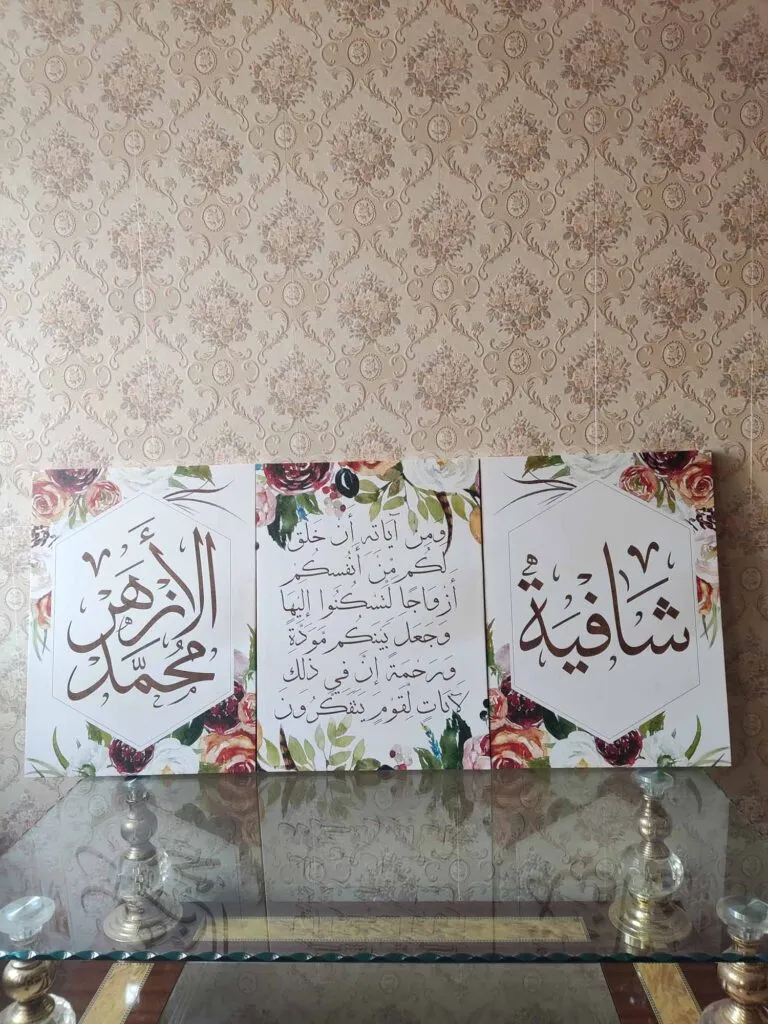 شَافِيَةٌ
ومِن آيَاتِهِ أَنْ خَلَقَ
لَكُم مِّنْ أَنفُسِكُمْ
أَزْوَاجًا لِّتَسْكُنُوا إِلَيْهَا
وَجَعَلَ بَيْنَكُم مَّوَدَّةً
وَرَحْمَةً إِنَّ فِي ذَٰلِكَ
لَآيَاتٍ لِّقَوْمٍ يَتَفَكَّرُونَ
الأَزهَر
مُحَمَّد